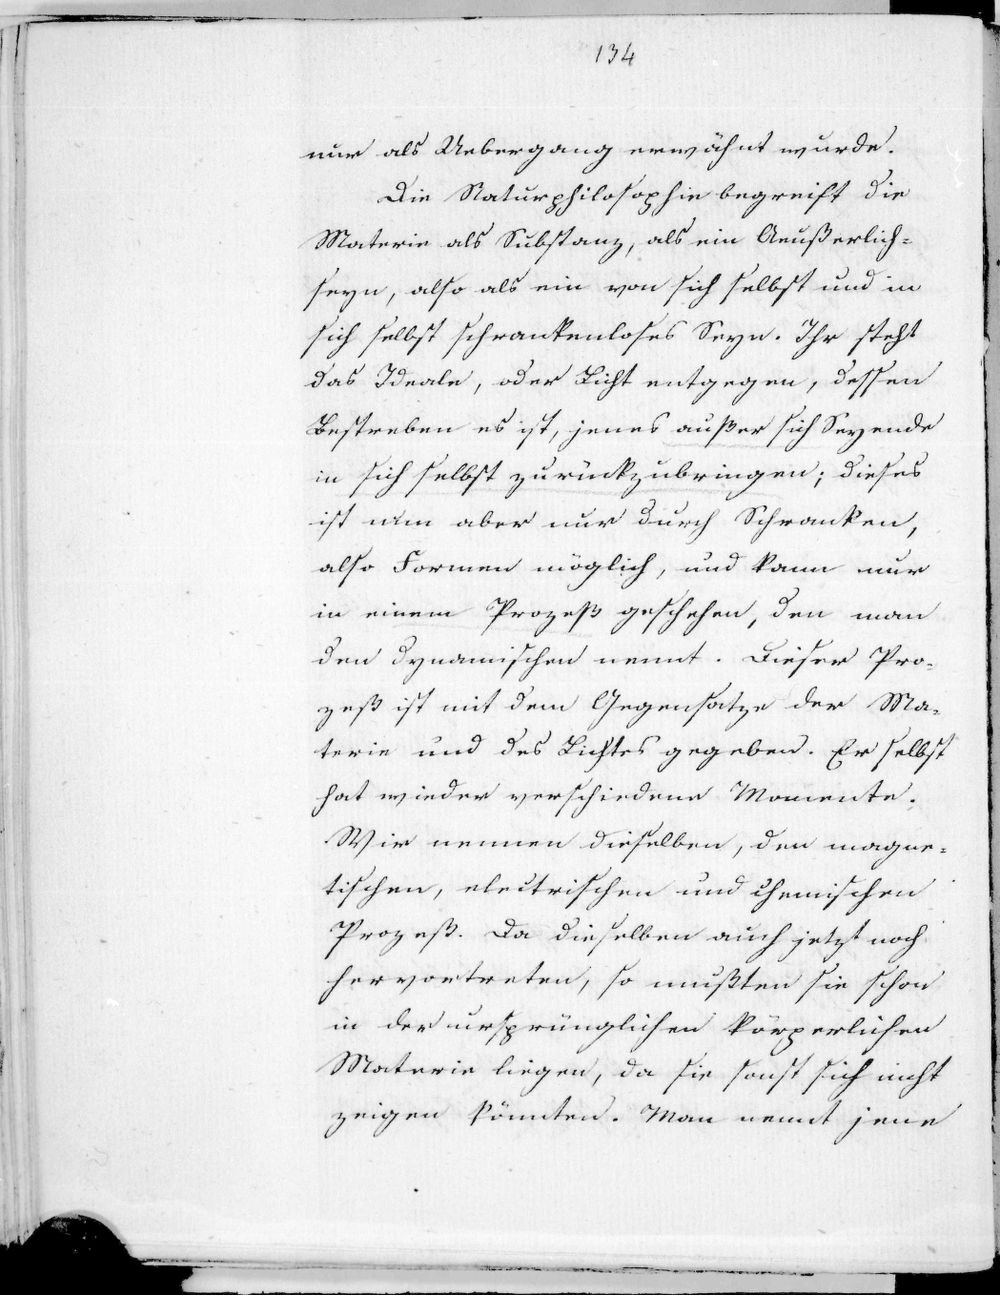 134
nur als Uebergang erwähnt wurde.
Die Naturphilosophie begreift die
Materie als Substanz, als ein Aeußerlich-
seyn, also als ein von sich selbst und in
sich selbst schrankenloses Seyn. Ihr steht
das Ideale, oder Licht entgegen, dessen
Bestreben es ist, jenes außer sich Seyende
in sich selbst zurückzubringen; dieses
ist nun aber nur durch Schranken,
also Formen möglich, und kann nur
in einem Prozeß geschehen, den man
den dynamischen nennt. Dieser Pro-
zeß ist mit dem Gegensatze der Ma-
terie und des Lichtes gegeben. Er selbst
hat wieder verschiedene Momente.
Wir nennen dieselben, den magne-
tischen, electrischen und chemischen
Prozeß. Da dieselben auch jetzt noch
hervortreten, so mußten sie schon
in der ursprünglichen körperlichen
Materie liegen, da sie sonst sich nicht
zeigen könnten. Man nennt jene